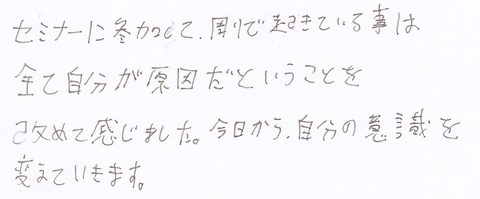 セミナーに参加して、周りで起きている事は
全て自分が原因だということを
改めて感じました。今日から、自分の意識を
変えていきます。